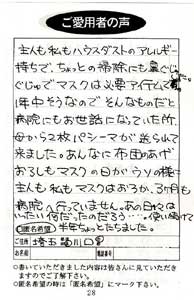 ご愛用者の声
主人も私もハウスダストのアレルギー
持ちで、ちょっとの掃除にも鼻ぐじゅ
ぐじゅでマスクは必要アイテムでした。
1年中そうなのでそんなものだと
病院にもお世話になっていた所、
母から2枚パシーマが送られて
来ました。あんなに布団のあげ
おろしもマスクの日がウソの様に
主人も私もマスクはおろか、3か月も
病院へ行っていません。あの日々は
いったい何だったのだろう…。使い続けて
半年ちょっとたちました。
匿名希望
ご住所 埼玉 川口
お名前
電話番号
○書いていただきました内容は皆さんに見ていただき
ますのでご了解下さい。
○匿名希望の時は「匿名希望」にマーク下さい。
28